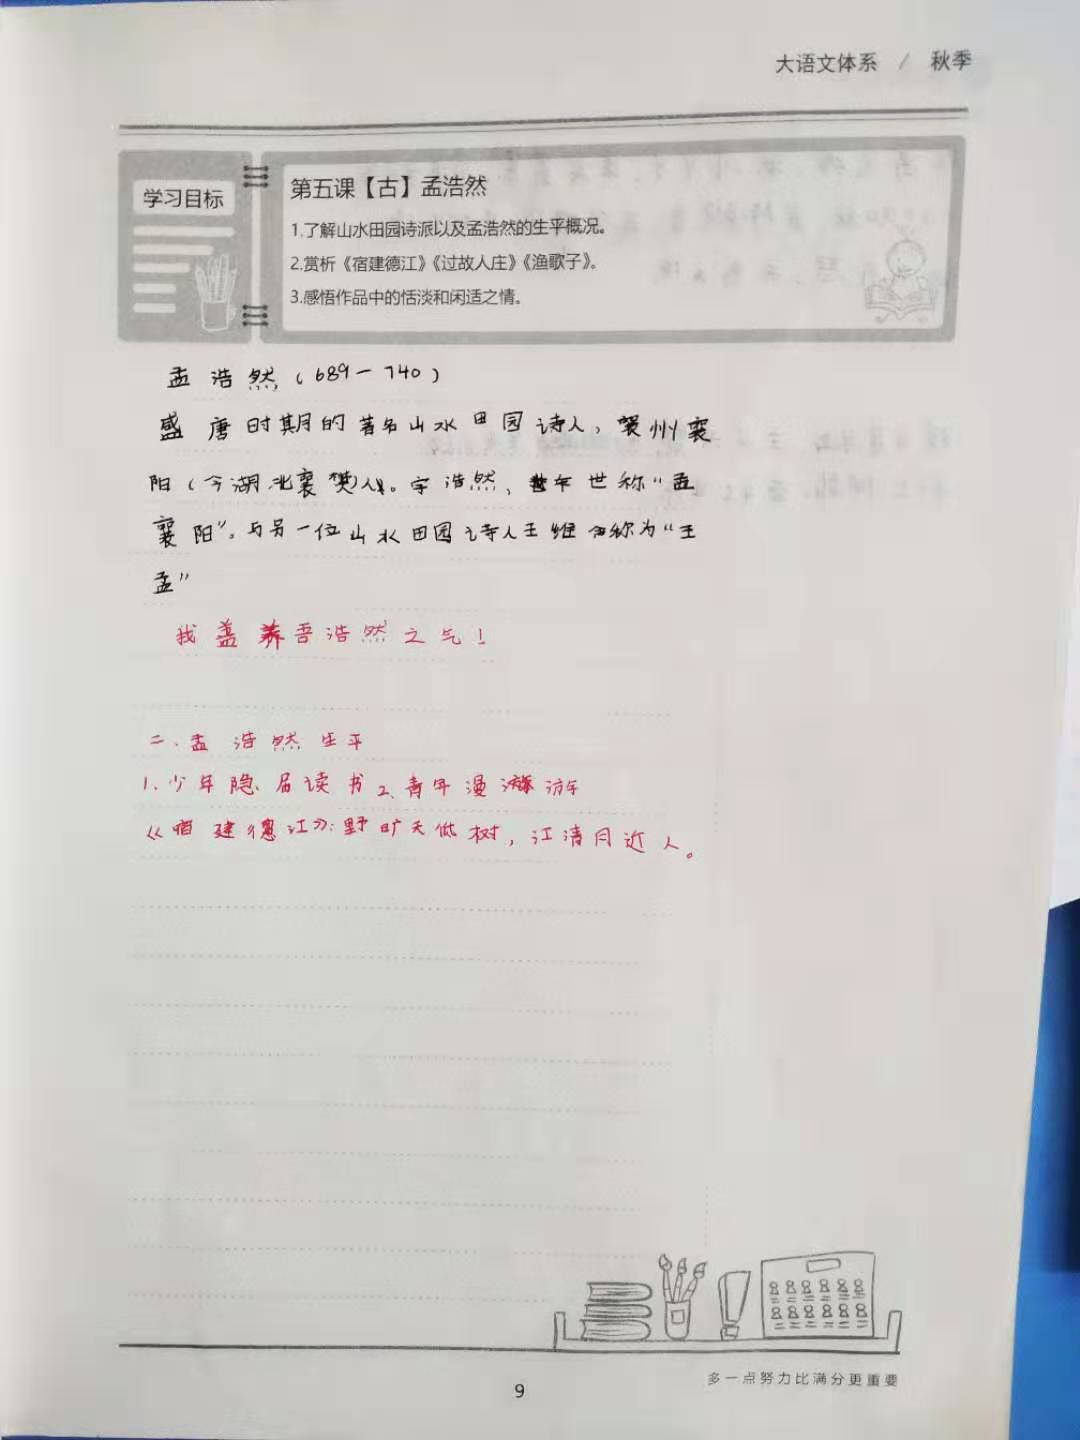 大语文体系 / 秋季
学习目标
第五课【古】孟浩然
1.了解山水田园诗派以及孟浩然的生平概况。
2.赏析《宿建德江》《过故人庄》《渔歌子》。
3.感悟作品中的恬淡和闲适之情。
孟浩然(689-740)
盛唐时期的著名山水田园诗人,襄州襄
阳(今湖北襄樊人)。字浩然,世称"孟
襄阳"。与另一位山水田园诗人王维合称为"王
孟"
我善养吾浩然之气!
二.孟浩然生平
1.少年隐居读书2.青年漫游
《宿建德江》:野旷天低树,江清月近人。
多一点努力比满分更重要
9